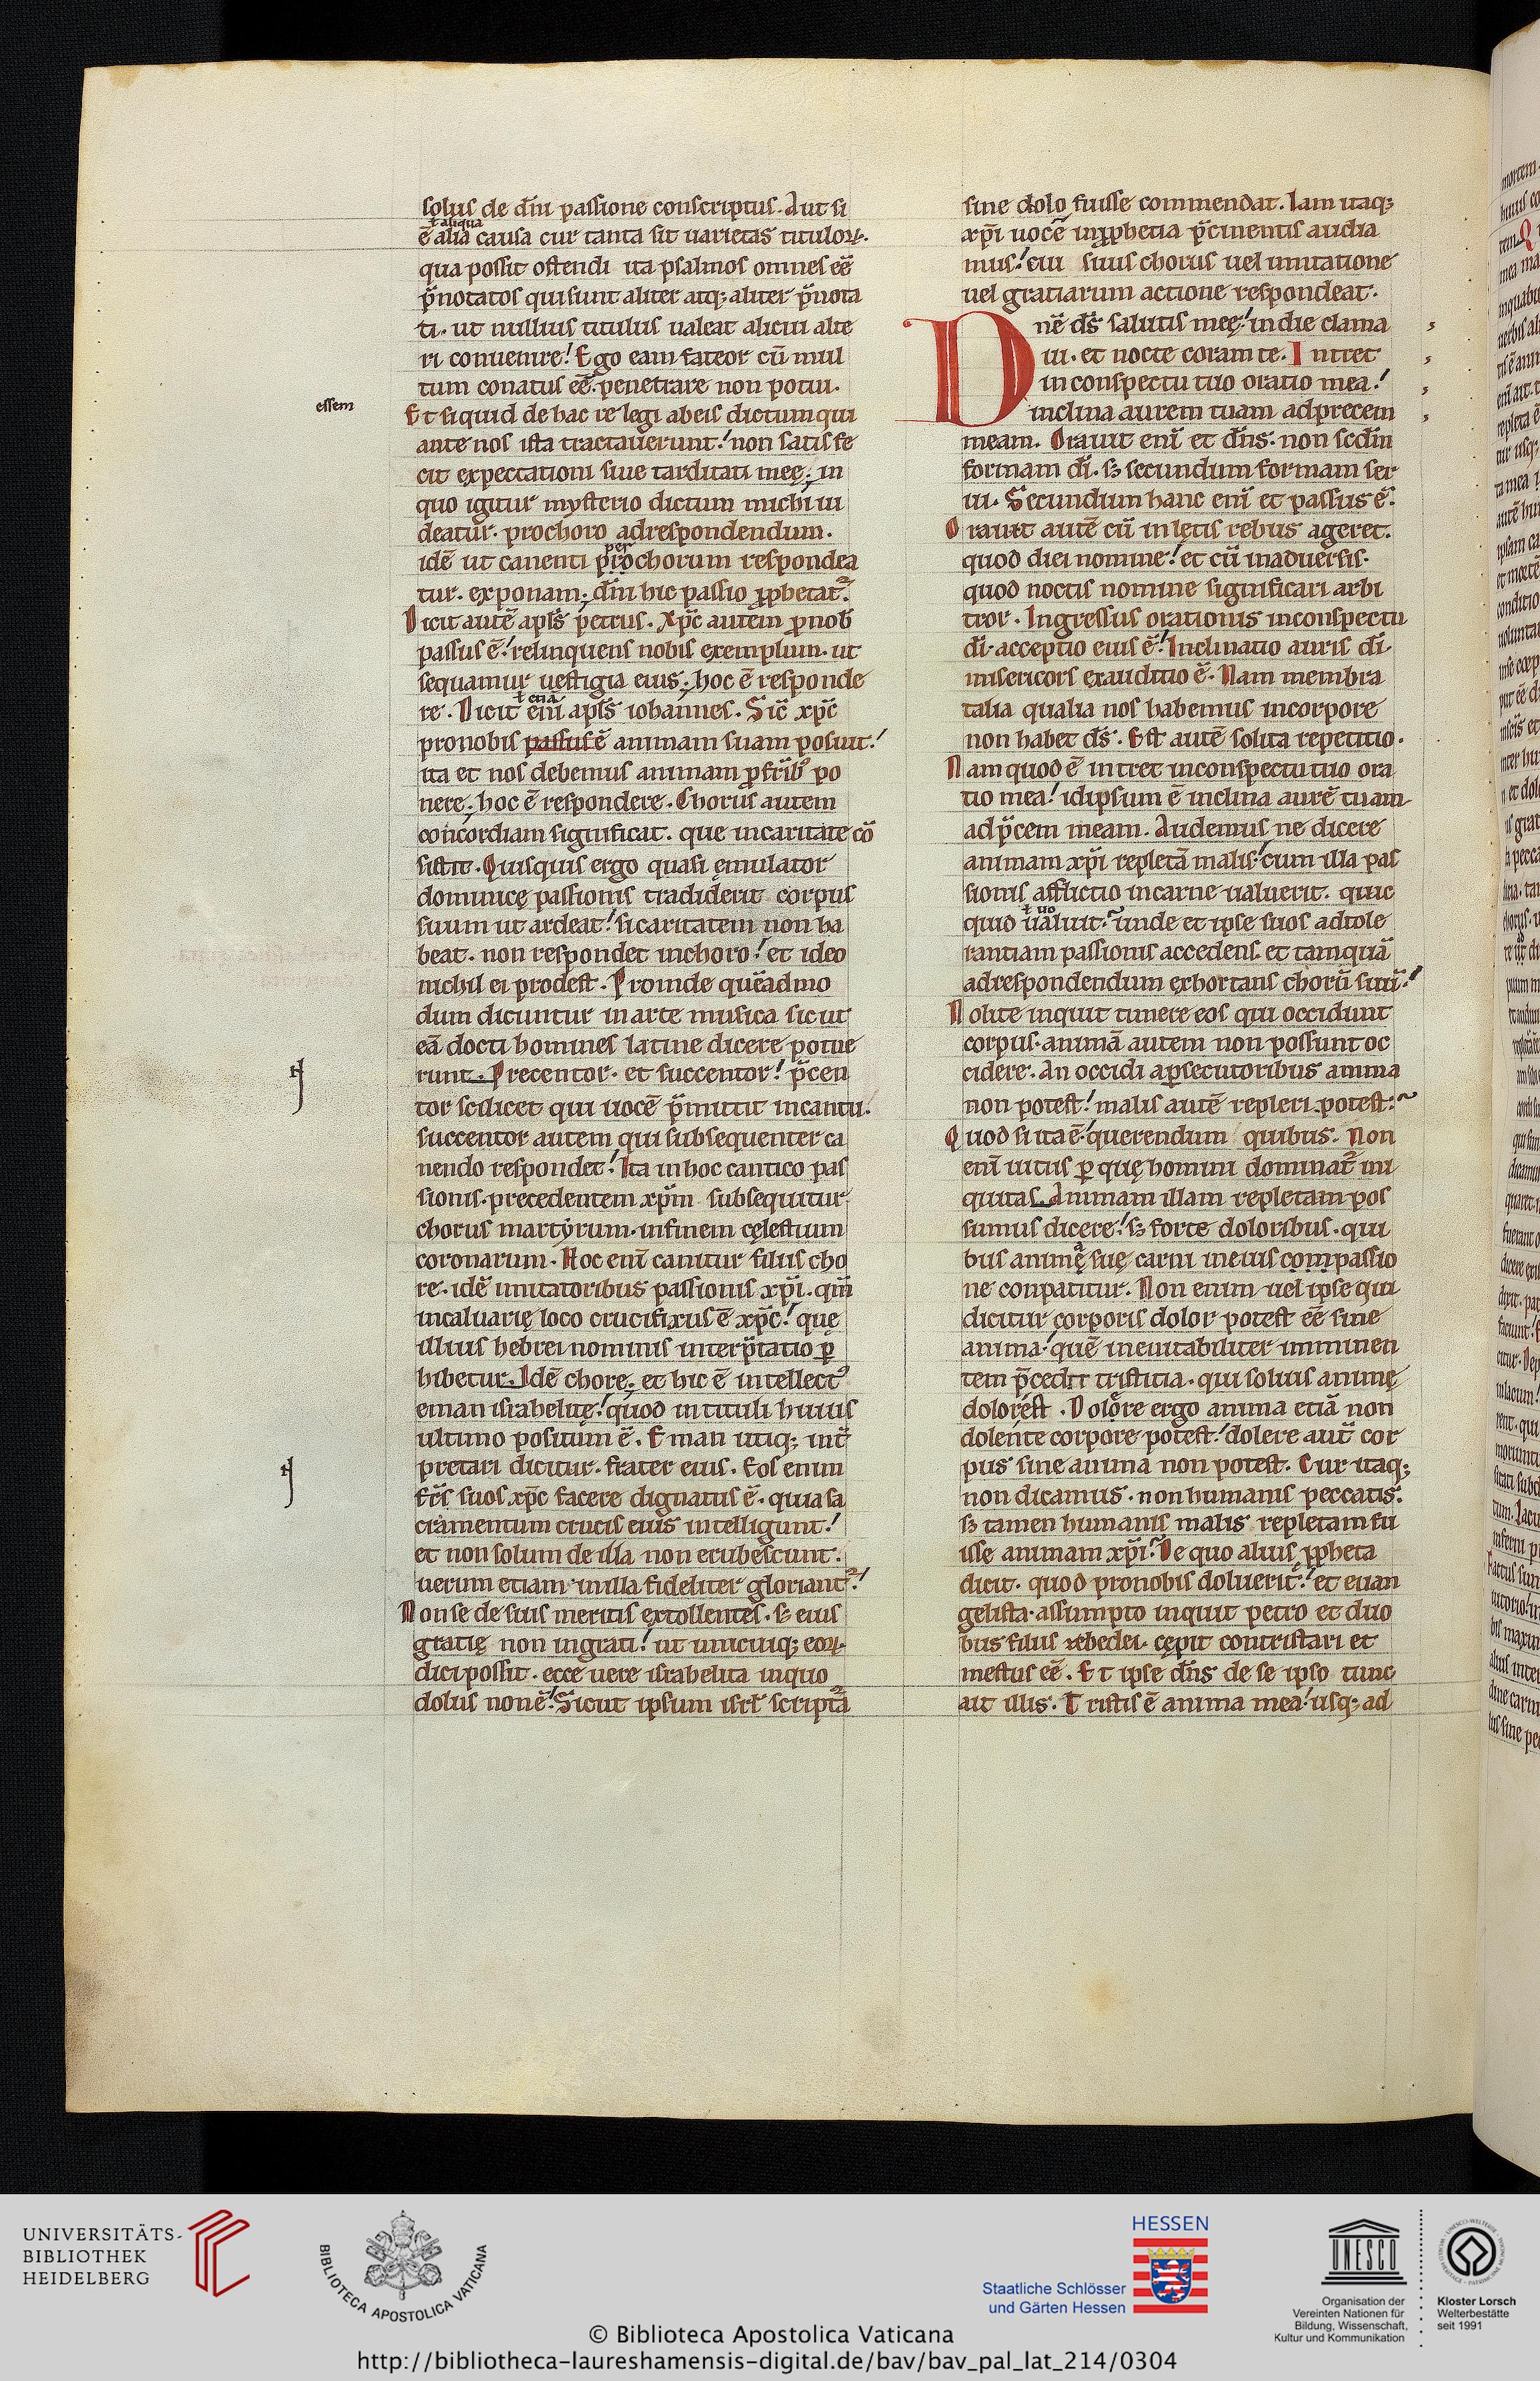 solus de dn̄i passione conscriptus. Aut si
ł aliqua
ē alia causa cur tanta sit uarietas tituloꝝ.
qua possit ostendi ita psalmos omnes eē
p̄notatos qui sunt aliter atq; aliter p̄nota
ti. ut nullius titulus ualeat alicui alte
ri conuenire! Ego eam fateor cū mul
tum conatus eē. penetrare non potui.
essem
Et siquid de hac re legi abeis dictum qui
ante nos ista tractauerunt! non satis fe
cit expectationi siue tarditati meę; in
quo igitur mysterio dictum michi ui
deatur. prochoro adrespondendum.
per
idē ut canenti prochorum respondea
tur. exponam; dn̄i hic passio ꝓphetat᷑.
Dicit autē apl̄s petrus. Xp̄c autem ꝓnob̄
passus ē! relinquens nobis exemplum. ut
sequamur uestigia eius; hoc ē responde
ł etiā
re. Dicit enī apl̄s iohannes. Sic̄ xp̄c
pronobis passus ē animam suam posuit!
ita et nos debemus animam ꝓfrīb; po
nere; hoc ē respondere. Chorus autem
concordiam significat. que incaritate cō
sistit. Quisquis ergo quasi ęmulator
dominicę passionis tradiderit corpus
suum ut ardeat! si caritatem non ha
beat. non respondet inchoro! et ideo
nichil ei prodest. Proinde quēadmo
dum dicuntur in arte musica sicut
eā docti homines latine dicere potue
runt. Precentor. et succentor! p̄cen
tor scilicet qui uocē p̄mittit incantu.
succentor autem qui subsequenter ca
nendo respondet! Ita in hoc cantico pas
sionis. precedentem xp̄m subsequitur
chorus martyrum. infinem cęlestium
coronarum. Hoc enī canitur filiis cho
re. idē imitatoribus passionis xp̄i. qm̄
incaluarię loco crucifixus ē xp̄c! quę
illius hebrei nominis interp̄tatio ꝑ
hibetur. Idē chore; et hic ē intellect᷒
eman israhelitę! quod in tituli huius
ultimo positum ē. Eman utiq; int̄
pretari dicitur. frater eius. Eos enim
frēs suos xp̄c facere dignatus ē. quia sa
cramentum crucis eius intelligunt!
et non solum de illa non erubescunt.
uerum etiam in illa fideliter gloriant᷑!
Non se de suis meritis extollentes. sꝫ eius
gratię non ingrati! ut unicuiq; eoꝝ
dici possit. ecce uere israhelita inquo
dolus non ē! Sicut ipsum isrł scriptā
sine dolo fuisse commendat. Iam itaq;
xp̄i uocē inꝓphetia p̄cinentis audia
mus! cui suus chorus uel imitatione
uel gratiarum actione respondeat.
Dnē ds̄ salutis meę! in die clama
ui. et nocte coram te. Intret
in conspectu tuo oratio mea!
inclina aurem tuam adprecem
meam. Orauit enī et dn̄s. non scdm̄
formam dī. sꝫ secundum formam ser
ui. Secundum hanc enī et passus ē.
Orauit autē cū in lętis rebus ageret.
quod diei nomine! et cū inaduersis.
quod noctis nomine significari arbi
tror. Ingressus orationis inconspectu
dī. acceptio eius ē! Inclinatio auris dī.
misericors exauditio ē. Nam membra
talia qualia nos habemus incorpore
non habet ds̄. Est autē solita repetitio.
Nam quod ē intret inconspectu tuo ora
tio mea! idipsum ē inclina aurē tuam
ad p̄cem meam. Audemus ne dicere
animam xp̄i repletā malis! cum illa pas
sionis afflictio incarne ualuerit. quic
ł uo
quid ualuit. unde et ipse suos adtole
rantiam passionis accedens. et tamquā
adrespondendum exhortans chorū suū!
Nolite inquit timere eos qui occidunt
corpus. animā autem non possunt oc
cidere. An occidi apersecutoribus anima
non potest! malis autē repleri potest.
Quod si ita ē! querendum quibus. Non
enī uitiis ꝑ quę homini dominat᷑ ini
quitas. Animam illam repletam pos
sumus dicere! sꝫ forte doloribus. qui
bus animę suę carni ineius compassio
ne conpatitur. Non enim uel ipse qui
dicitur corporis dolor potest eē sine
anima. quē ineuitabiliter imminen
tem p̄cedit tristitia. qui solius animę
dolor est. Dolore ergo anima etiā non
dolente corpore potest! dolere aut̄ cor
pus sine anima non potest. Cur itaq;
non dicamus. non humanis peccatis.
sꝫ tamen humanis malis repletam fu
isse animam xp̄i. De quo alius ꝓpheta
dicit. quod pronobis doluerit! et euan
gelista. assumpto inquit petro et duo
bus filiis zebedei. cępit contristari et
mestus eē. Et ipse dn̄s de se ipso tunc
ait illis. Tristis ē anima mea! usq; ad
UNIVERSITÄTS-
BIBLIOTHEK
HEIDELBERG
BIBLIOTECA APOSTOLICA VATICANA
HESSEN
Staatliche Schlösser
und Gärten Hessen
UNESCO
Organisation der
Vereinten Nationen für
Bildung, Wissenschaft,
Kultur und Kommunikation
Kloster Lorsch
Welterbestätte
seit 1991
© Biblioteca Apostolica Vaticana
http://bibliotheca-laureshamensis-digital.de/bav/bav_pal_lat_214/0304